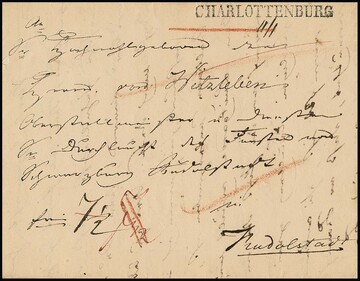 CHARLOTTENBURG
11/4
An
Sr Hochwohlgeboren den
Herrn von Witzleben
Oberstallmeister in diensten
Sr Durchlaucht des Fürsten von
Schwarzburg Rudolstadt.
frei 7½
in
Rudolstadt